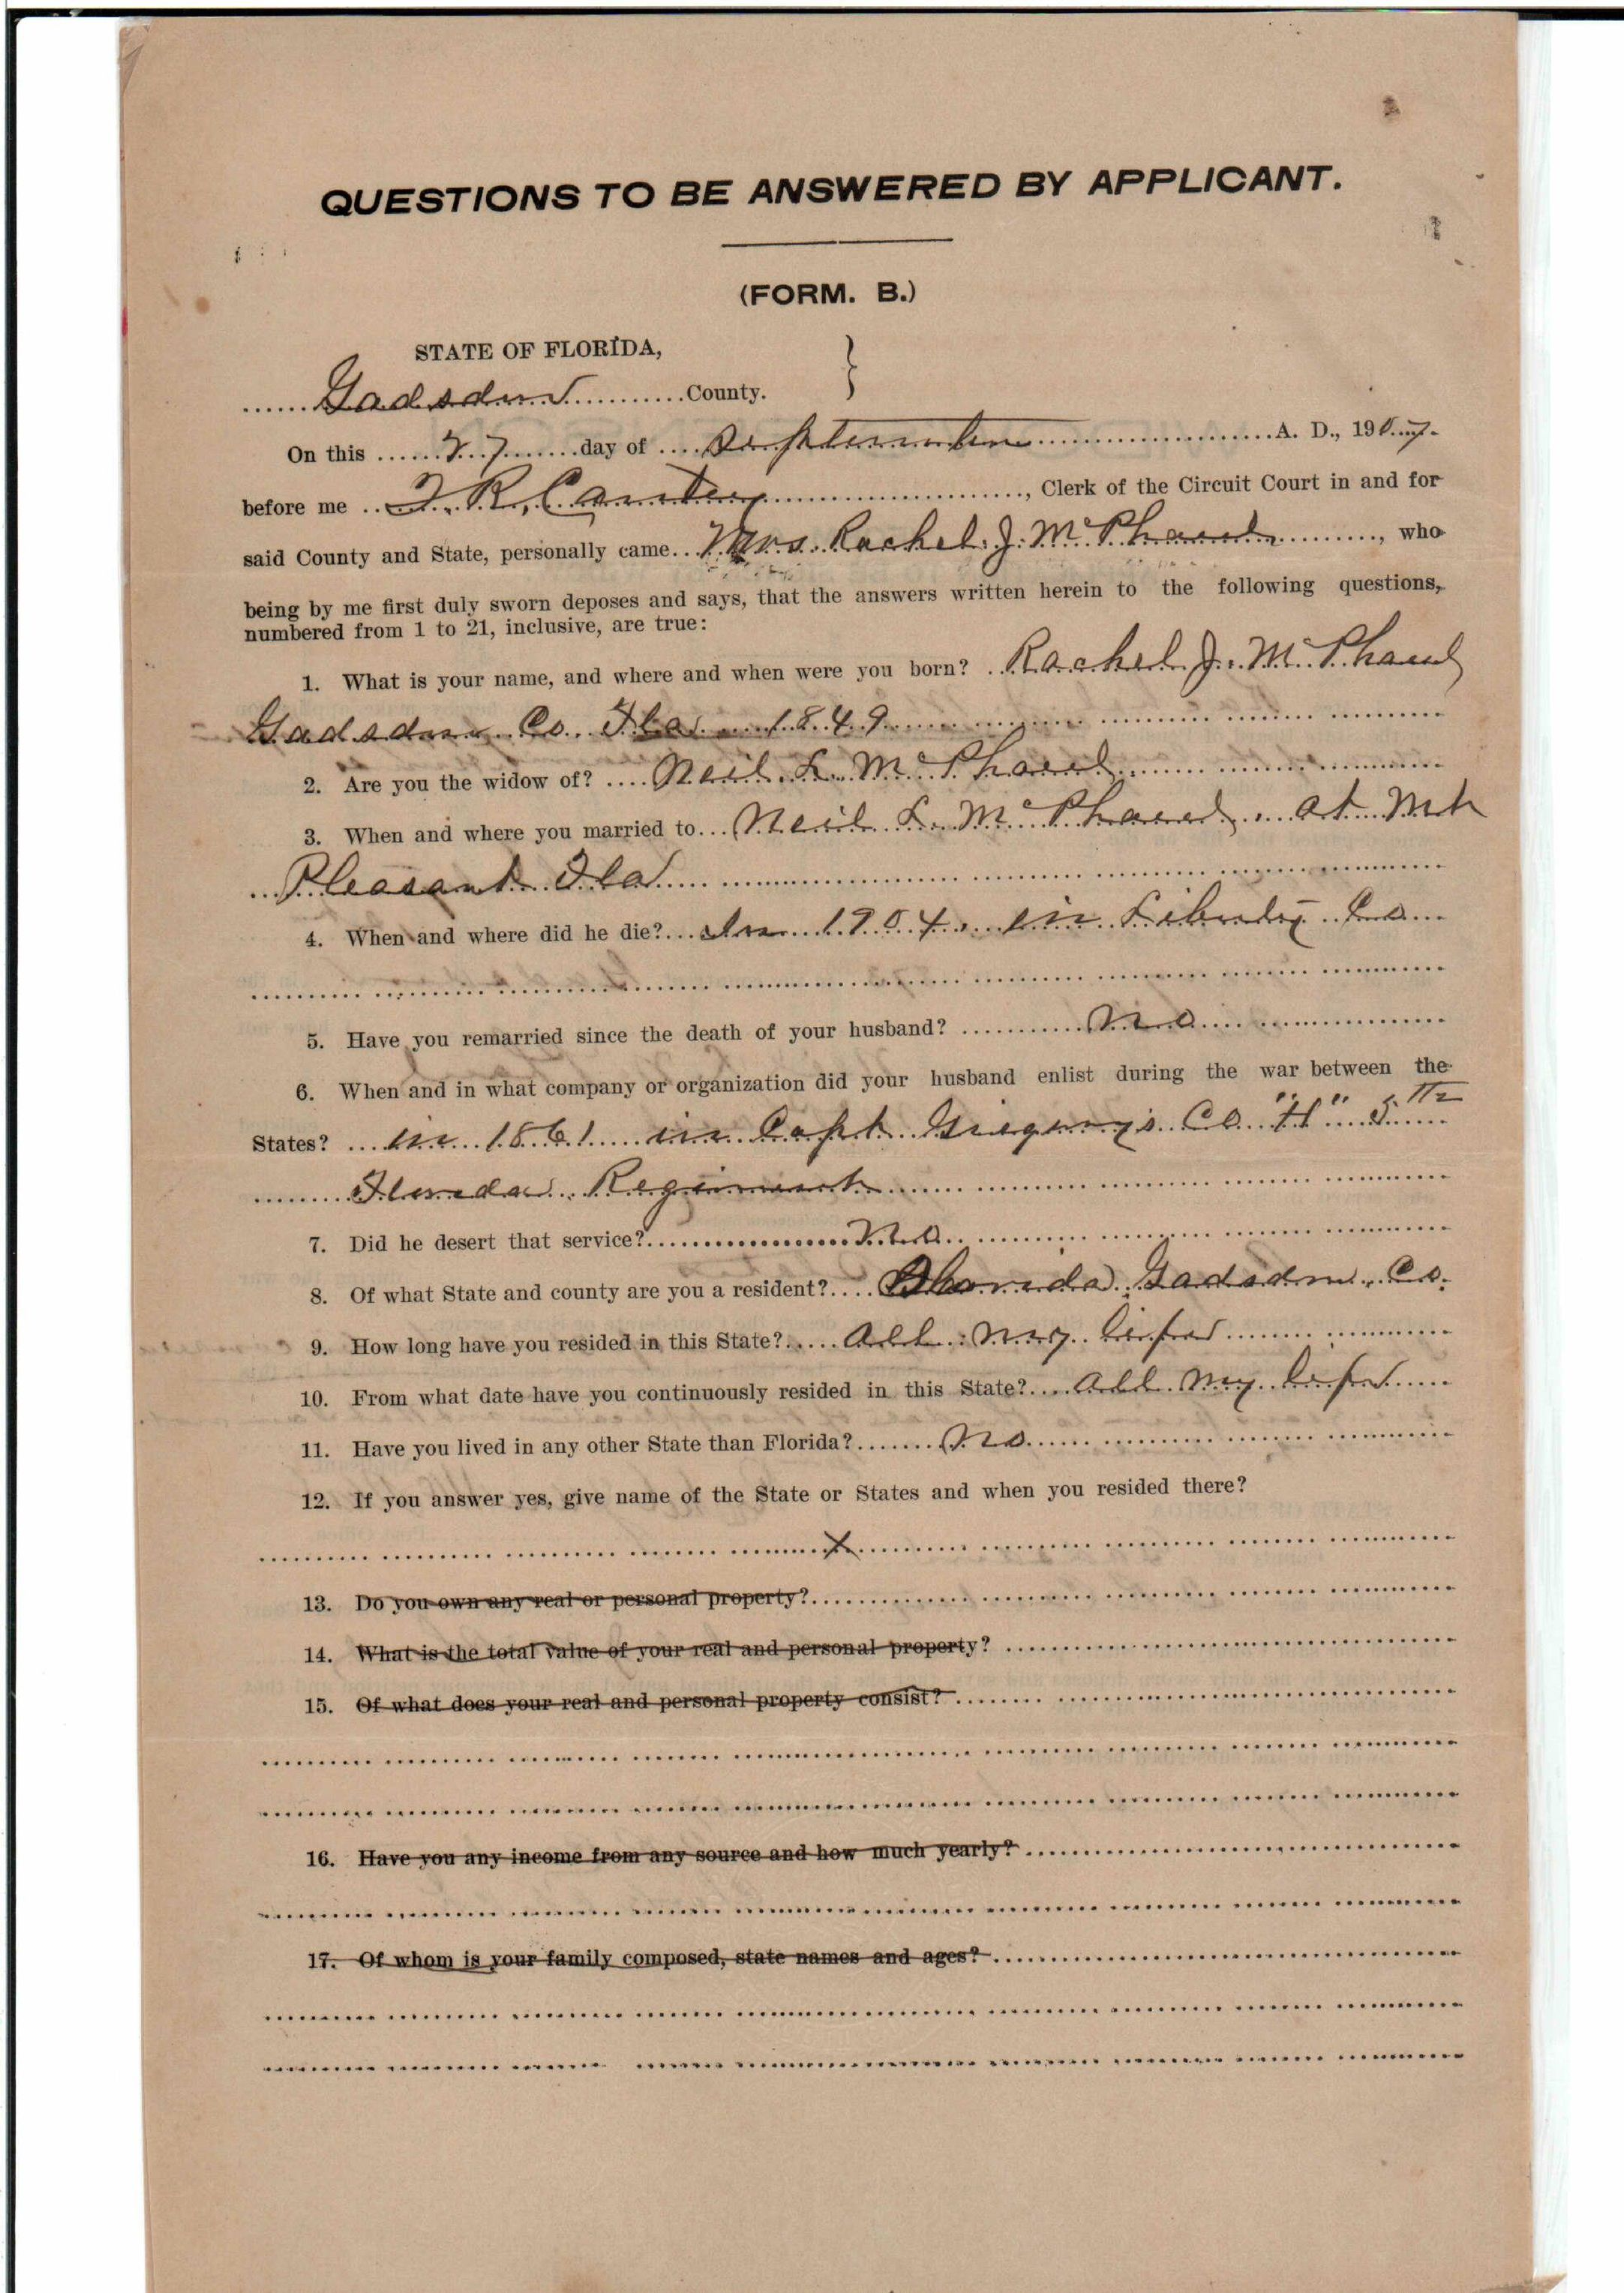 QUESTIONS TO BE ANSWERED BY APPLICANT.
(FORM. B.)
STATE OF FLORIDA,
Gadsden County.
On this 27 day of September A. D., 1907.
before me , Clerk of the Circuit Court in and for
said County and State, personally came Mrs. Rachel J. McPhaul, who
being by me first duly sworn deposes and says, that the answers written herein to the following questions,
numbered from 1 to 21, inclusive, are true:
1. What is your name, and where and when were you born? Rachel J. McPhaul
Gadsden Co. Fla 1849
2. Are you the widow of? Neil L. McPhaul
3. When and where you married to Neil L. McPhaul, at Mt
Pleasant Fla
4. When and where did he die? In 1904, in Liberty Co
5. Have you remarried since the death of your husband? No
6. When and in what company or organization did your husband enlist during the war between the
States? in 1861 in Capt Gregory's Co "H" 5th
Florida Regiment
7. Did he desert that service? No
8. Of what State and county are you a resident? Florida Gadsden Co.
9. How long have you resided in this State? All my life
10. From what date have you continuously resided in this State? All my life
11. Have you lived in any other State than Florida? No
12. If you answer yes, give name of the State or States and when you resided there?
X
13. Do you own any real or personal property?
14. What is the total value of your real and personal property?
15. Of what does your real and personal property consist?
16. Have you any income from any source and how much yearly?
17. Of whom is your family composed, state names and ages?